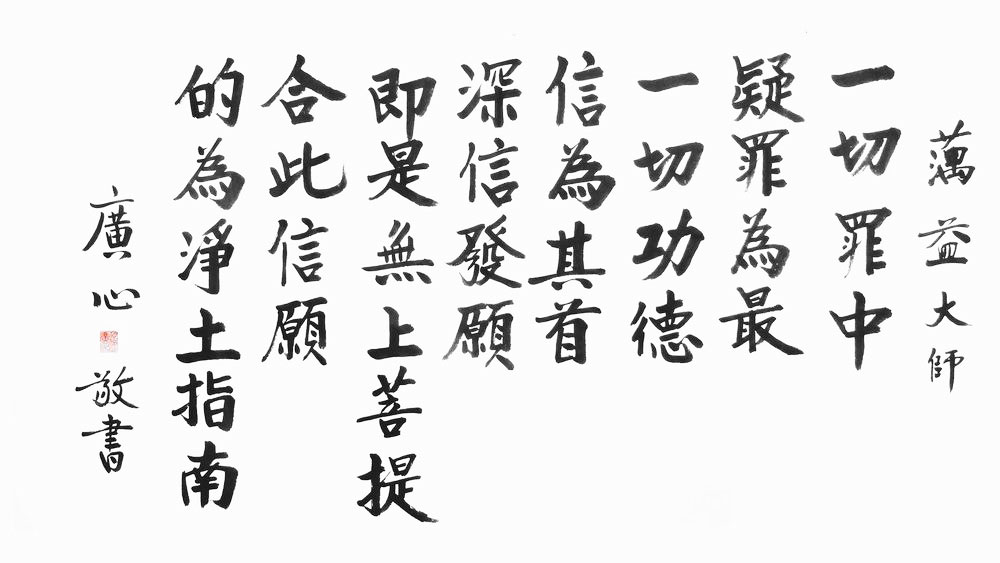 蕅益大師
一切罪中
疑罪為最
一切功德
信為其首
深信發願
即是無上菩提
合此信願
的為淨土指南
廣心
敬書